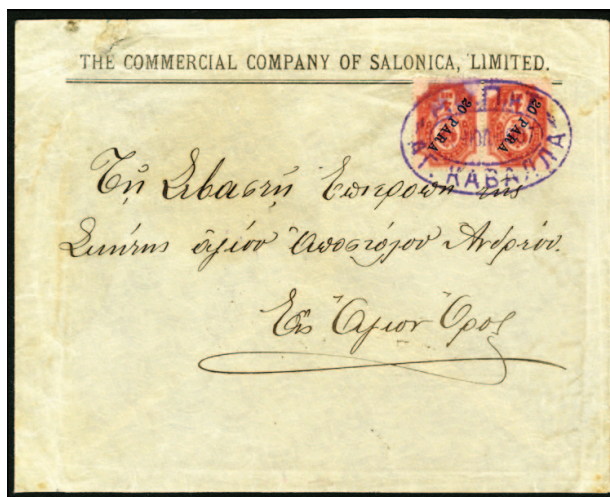 THE COMMERCIAL COMPANY OF SALONICA, LIMITED.
20 PARA 20 PARA
АГ. КАВАЛЛА
Τῇ Σεβαστῇ Ἐπιτροπῇ τῆς
Σκήτης ἁγίου Ἀποστόλου Ἀνδρέου.
Εἰς Ἅγιον Ὄρος